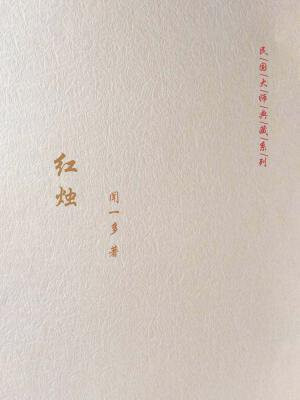 民国大师典藏系列
闻一多 著
红烛